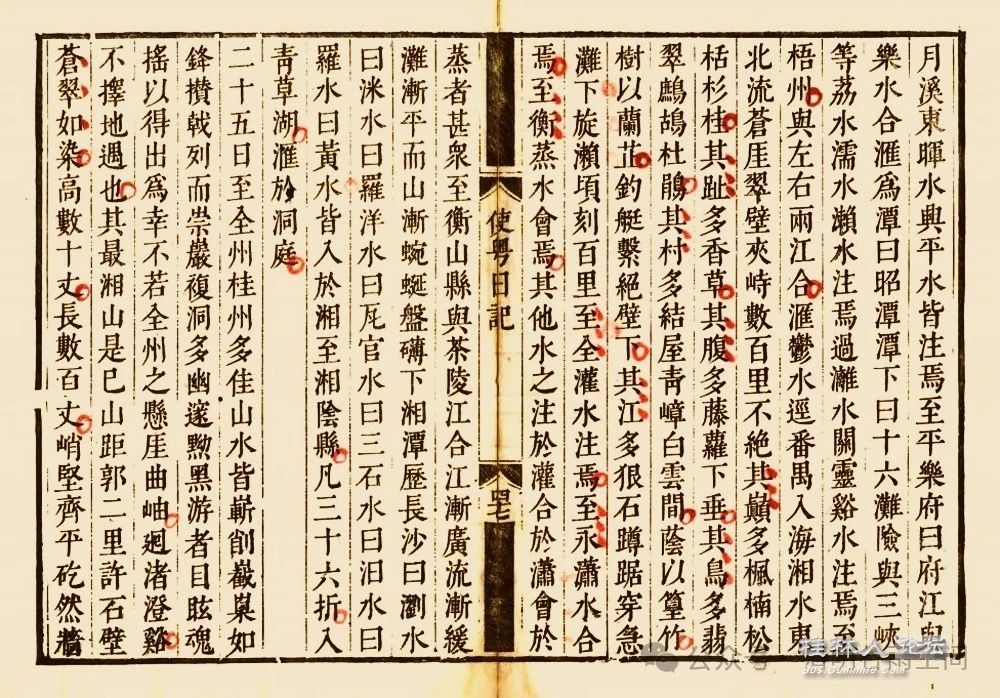 月溪東暉水與平水皆注焉至平樂府曰府江與
樂水合滙爲潭曰昭潭潭下曰十六灘險與三峽
等荔水濡水瀨水注焉過灕水關靈谿水注焉至
梧州與左右兩江合滙鬱水逕番禺入海湘水東
北流蒼厓翠壁夾峙數百里不絶其巔多楓楠松
栝杉桂其趾多香草其腹多藤蘿下垂其鳥多翡
翠鷓鴣杜鵑其村多結屋靑嶂白雲間蔭以篁竹
樹以蘭芷釣艇繫絶壁下其江多狠石蹲踞穿急
灘下旋瀨頃刻百里至全灌水注焉至永瀟水合
焉至衡蒸水會焉其他水之注於灌合於瀟會於
使粵日記
蒸者甚衆至衡山縣與茶陵江合江漸廣流漸緩
灘漸平而山漸蜿蜒盤礴下湘潭歷長沙曰瀏水
曰洣水曰羅洋水曰瓦官水曰三石水曰汨水曰
羅水曰黃水皆入於湘至湘陰縣凡三十六折入
靑草湖滙於洞庭
二十五日至全州桂州多佳山水皆嶄削巀嶪如
鋒櫕戟列而崇巖複洞多幽邃黝黑游者目眩魂
搖以得出爲幸不若全州之懸厓曲岫廻渚澄谿
不擇地遇也其最湘山是已山距郭二里許石壁
蒼翠如染高數十丈長數百丈峭堅齊平矻然牆
公众号
桂林人论坛